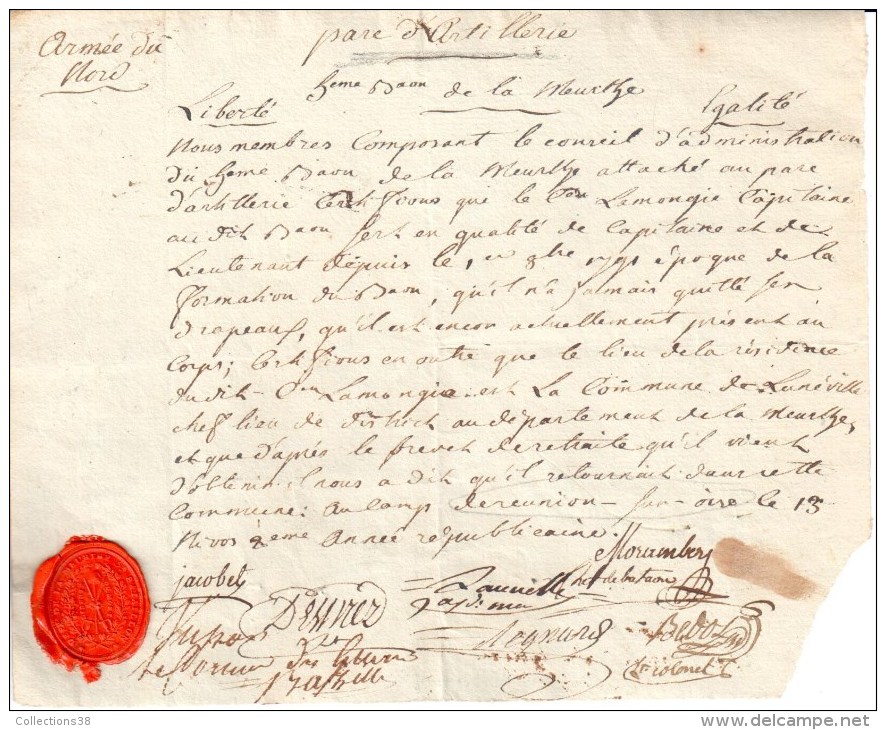 Armée du
Nord
parc d'Artillerie
5eme Baon de la Meurthe
Liberté Egalité
Nous membres Composant le conseil d'administration
du 5eme Baon de la Meurthe attaché au parc
d'artillerie Certifions que le Cen Lamongie Capitaine
au dit Baon sert en qualité de Capitaine et de
Lieutenant depuis le 1er 8bre 1791 époque de la
formation du Baon, qu'il n'a jamais quitté ses
Drapeaux, qu'il est encor actuellement présent au
Corps; Certifions en outre que le lieu de la résidence
du dit Cen Lamongie est La Commune de Lunéville
chef lieu de district au département de la Meurthe,
et que d'après le brevet de retraite qu'il vient
d'obtenir il nous a dit qu'il retournait dans cette
Commune: au Camp de reunion sur oire le 13
Nivos 2eme Année républicaine.
jacobet
chef de bataon
Lt colonel
Collections38
www.delcampe.net